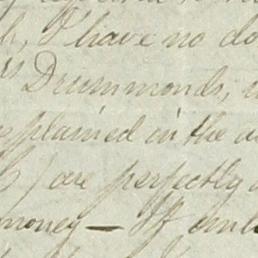 I have no do
Drummonds,
explained in the a
are perfectly
money — If